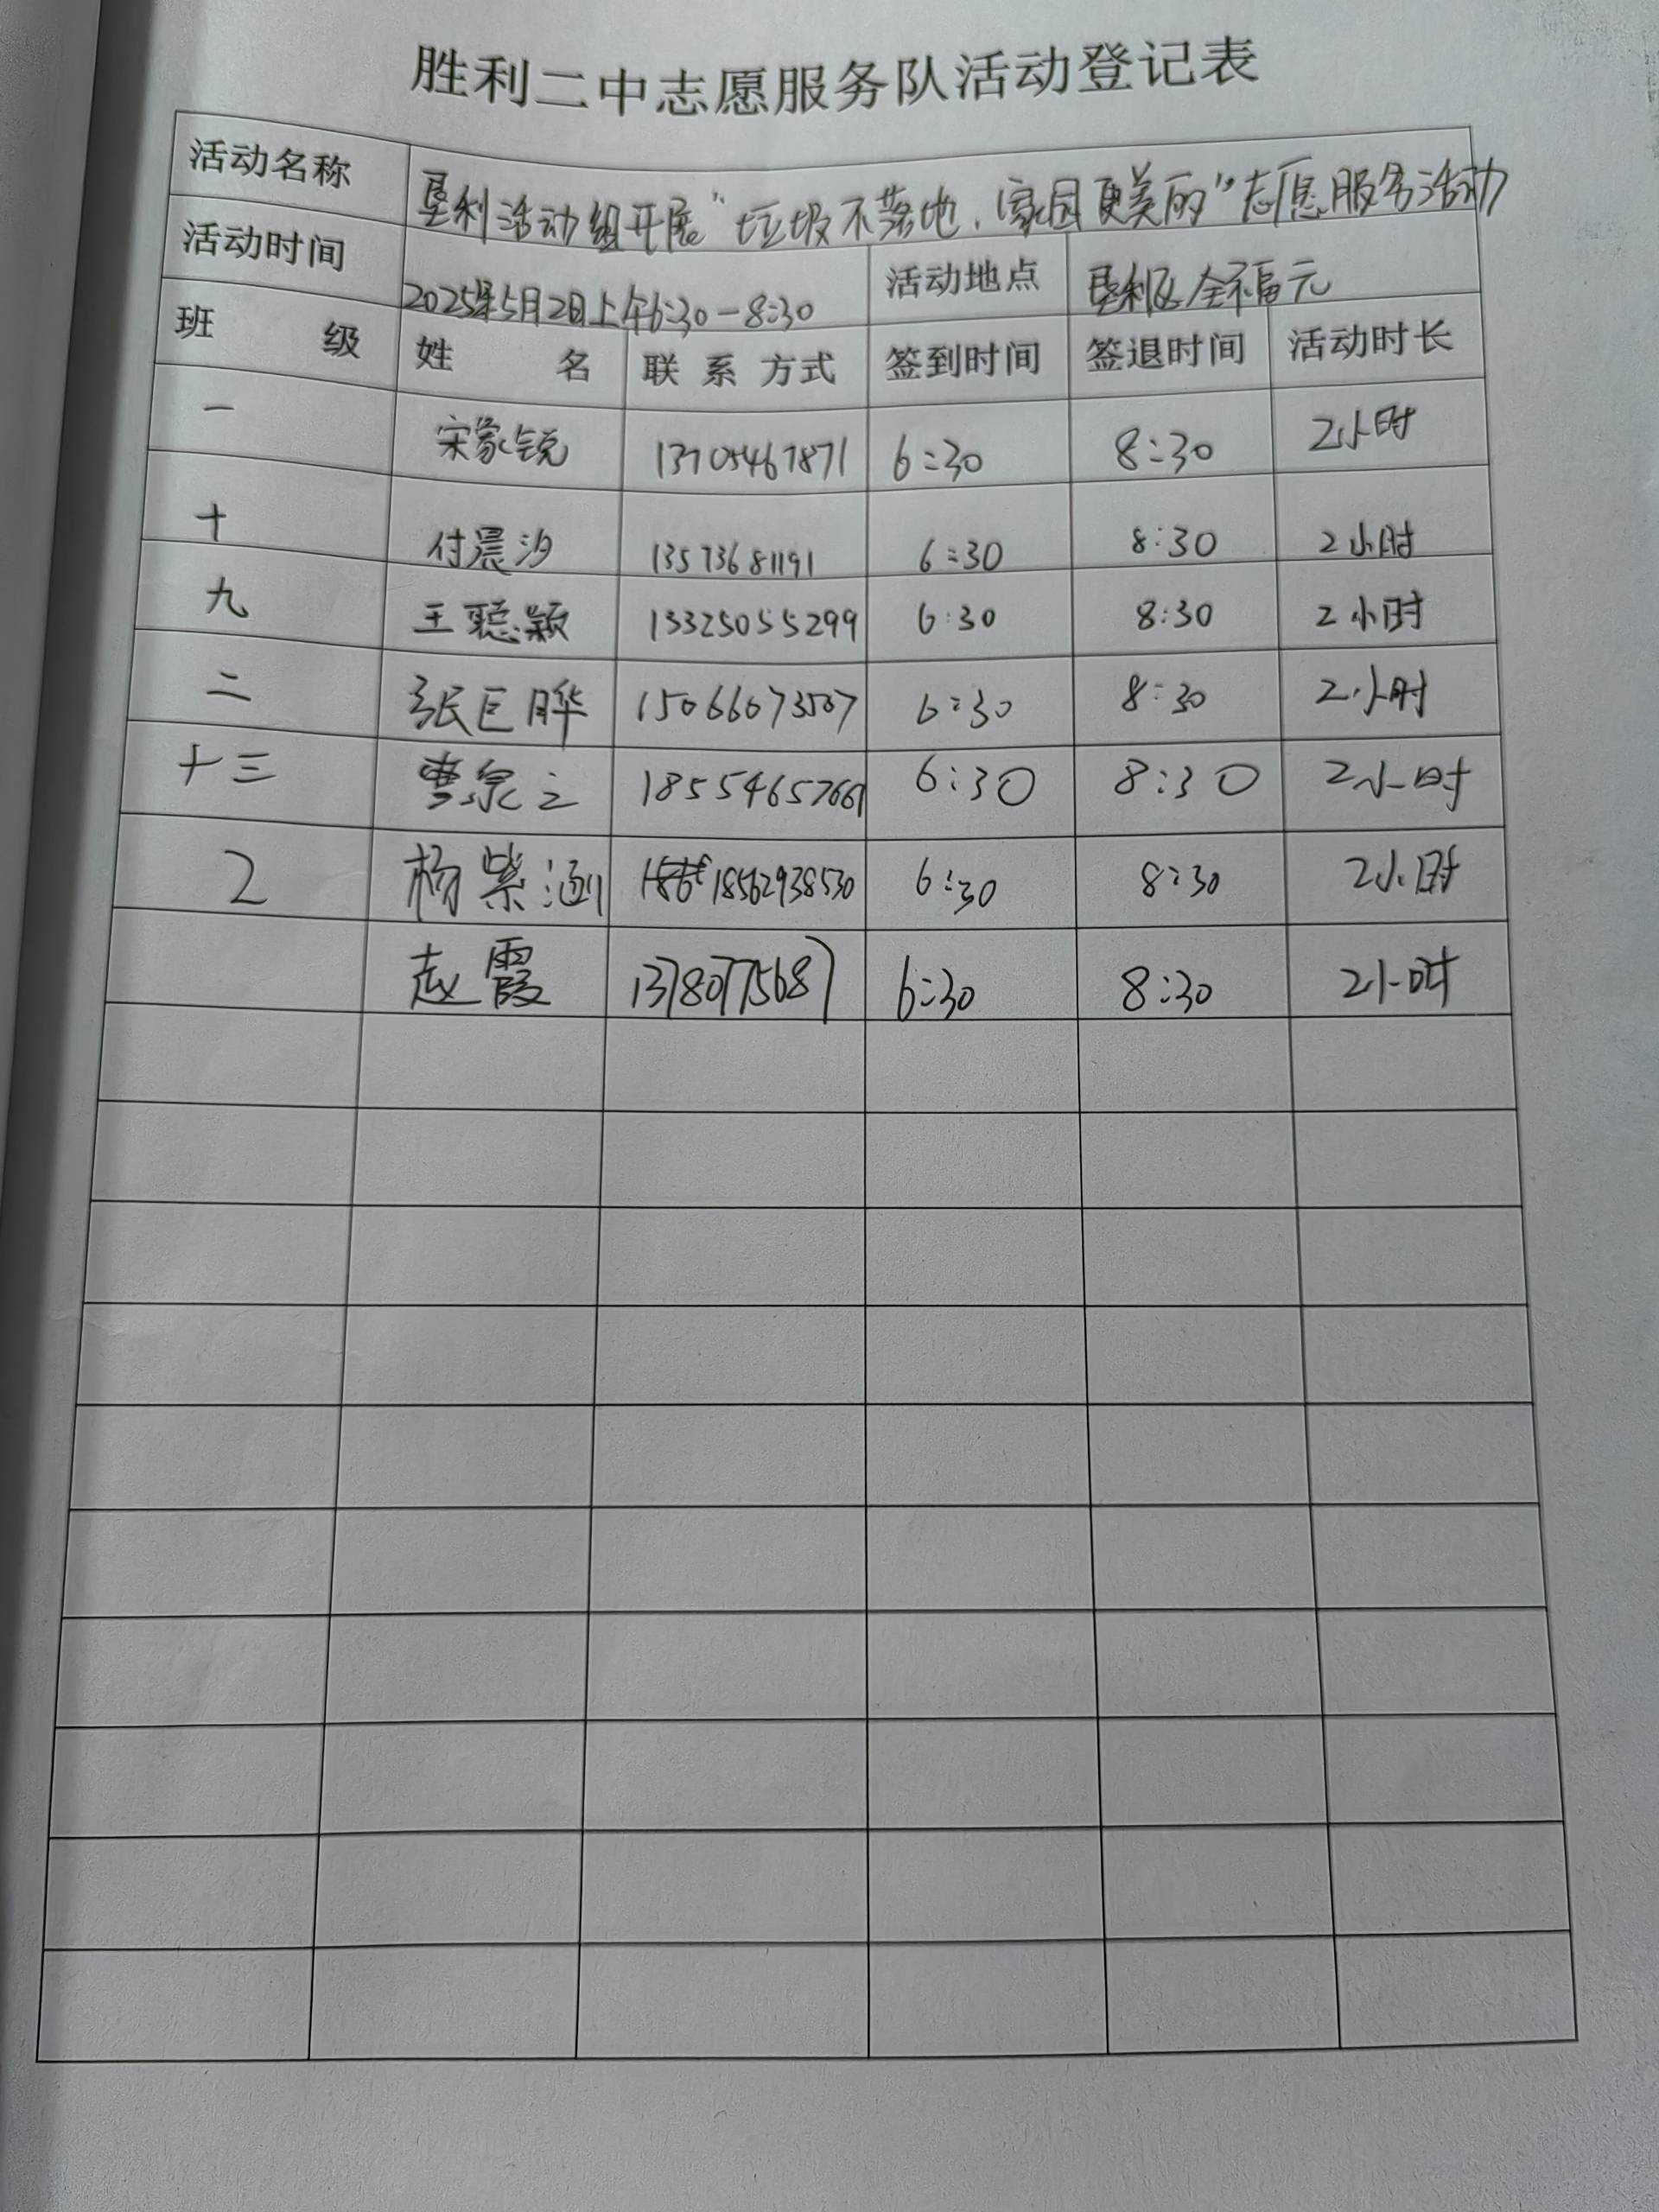 胜利二中志愿服务队活动登记表
活动名称 垦利活动组开展“垃圾不落地，家园更美的”志愿服务活动
活动时间 2025年5月2日上午6:30-8:30 活动地点 垦利区全福元
班级 姓名 联系方式 签到时间 签退时间 活动时长
一 宋家锐 13705467871 6:30 8:30 2小时
十 付晨汐 13573681191 6:30 8:30 2小时
九 王聪颖 13325055299 6:30 8:30 2小时
二 张巨晔 15066673507 6:30 8:30 2小时
十三 曹泉之 6:30 8:30 2小时
2 杨紫涵 18562938530 6:30 8:30 2小时
赵霞 13780775687 6:30 8:30 2小时